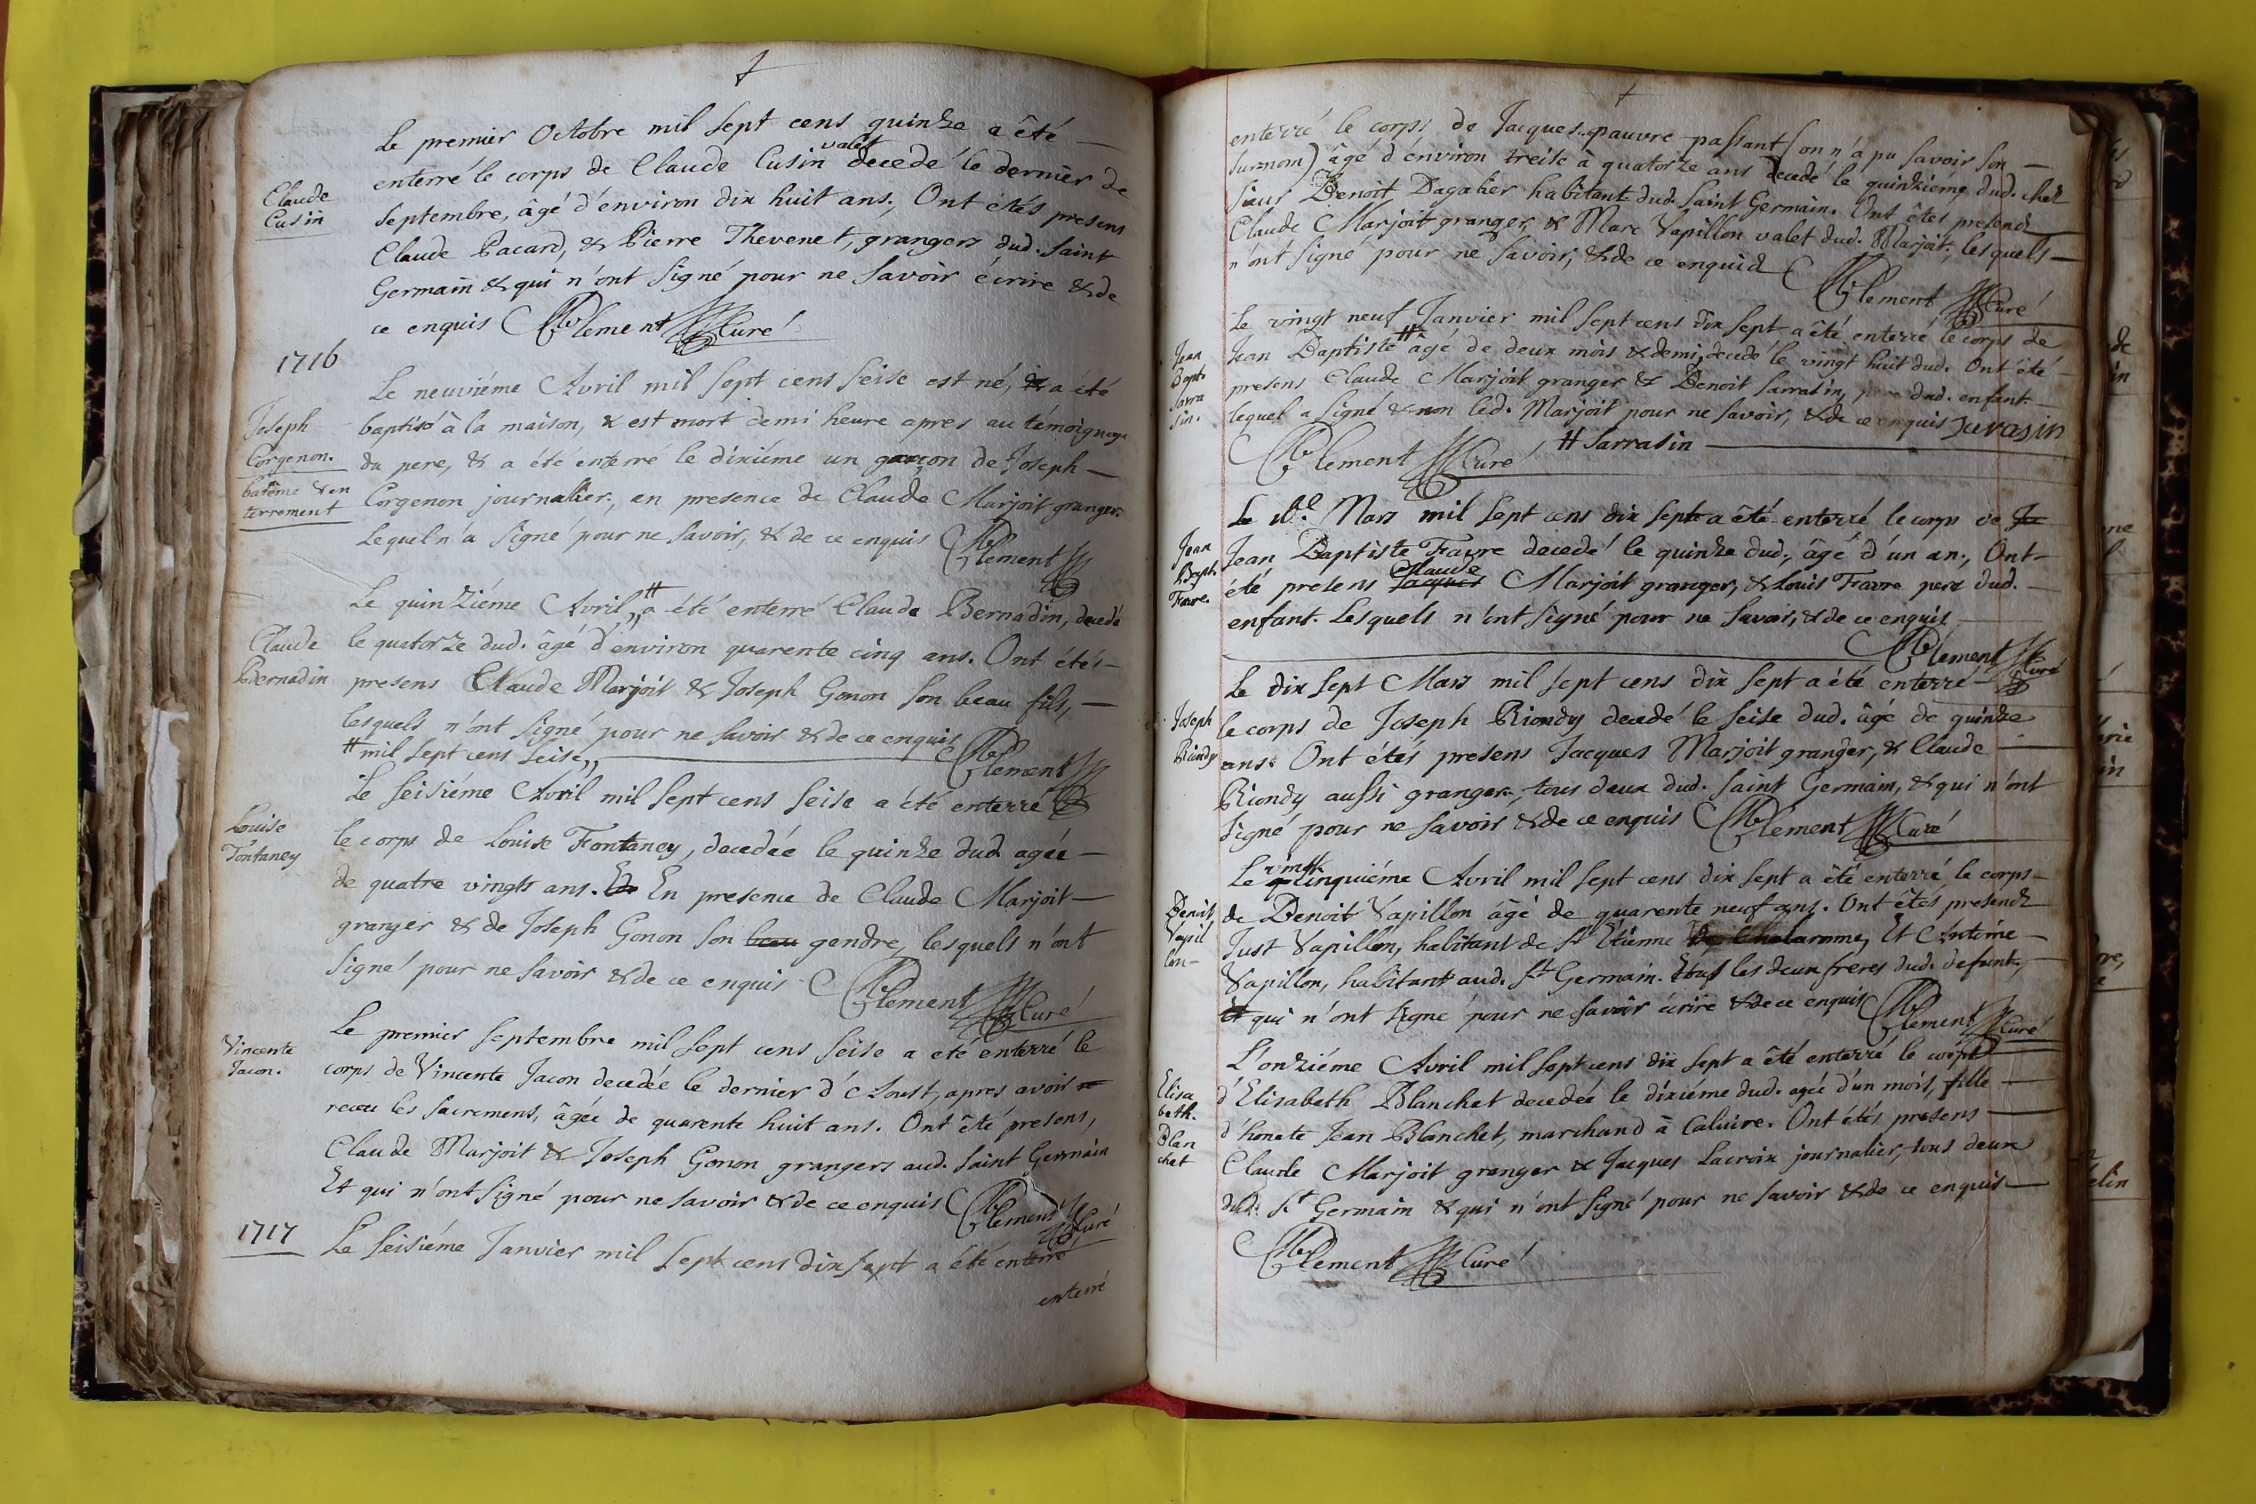 Le premier Octobre mil sept cens quinze a êté
valet
enterré le corps de Claude Cusin decedé le dernier de
Claude
Cusin
Septembre, âgé d'environ dix huit ans; Ont étés presens
Claude Pacard, & Pierre Thevenet, grangers dud. Saint
Germain & qui n'ont signé pour ne savoir écrire & de
ce enquis Clement Curé
1716
Le neuviéme Avril mil sept cens seise est né, & a été
Joseph
Corgenon.
batême & en
terrement
baptisé à la maison, & est mort demi heure apres au témoignage
du pere, & a été enterré le dixiéme un garçon de Joseph
Corgenon journalier, en presence de Claude Marjoit granger
Lequel n'a signé pour ne savoir, & de ce enquis Clement
Le quinzieme Avril # a été enterré Claude Bernadin, decedé
Claude
Bernadin
le quatorze dud. âgé d'environ quarente cinq ans. Ont étés
presens Claude Marjoit & Joseph Gonon son beau fils,
lesquels n'ont signé pour ne savoir & de ce enquis
# mil sept cens seise,, Clement
Le seisiéme Avril mil sept cens seise a été enterré
Louise
Fontaney
le corps de Louise Fontaney, decedée le quinze dud. agée
de quatre vingts ans. En presence de Claude Marjoit
granger & de Joseph Gonon son beau gendre, lesquels n'ont
signé pour ne savoir & de ce enquis Clement Curé
Le premier septembre mil sept cens seise a eté enterré le
Vincente
Jacon.
corps de Vincente Jacon decedée le dernier d'Aoust, apres avoir
receu les sacremens, âgée de quarente huit ans. Ont êté presens,
Claude Marjoit & Joseph Gonon grangers aud. Saint Germain
Et qui n'ont signé pour ne savoir & de ce enquis Clement Curé
1717
Le seisiéme Janvier mil sept cens dix sept a été enterré
enterré
enterré le corps de Jacques pauvre passant (on n'a pu savoir son
surnom) âgé d'environ treise à quatorze ans decedé le quinziéme dud. chez
sieur Benoit Dagalier habitant dud. Saint Germain. Ont êtés presens
Claude Marjoit granger, & Marc Vapillon valet dud. Marjoit, lesquels
n'ont signé pour ne savoir, & de ce enquis Clement Curé
Le vingt neuf Janvier mil sept cens dix sept a êté enterré le corps de
Jean
Bapt.
Sarra
sin.
Jean Baptiste # âgé de deux mois & demi, decedé le vingt huit dud. Ont êté
presens Claude Marjoit granger & Benoit Sarrasin, pere dud. enfant
lequel a signé & non led. Marjoit pour ne savoir, & de ce enquis Sarasin
Clement Curé # Sarrasin
Le 16.e Mars mil sept cens dix sept a êté enterré le corps de
Jean
Bapt.
Favre.
Jean Baptiste Favre decedé le quinze dud., âgé d'un an; Ont
Claude
été presens Jacques Marjoit granger, & Louis Favre pere dud.
enfant. Lesquels n'ont signé pour ne savoir, & de ce enquis
Clement Curé
Le dix sept Mars mil sept cens dix sept a été enterré
Joseph
Riondy
le corps de Joseph Riondy decedé le seise dud. âgé de quinze
ans. Ont étés presens Jacques Marjoit granger, & Claude
Riondy aussi granger, tous deux dud. Saint Germain, & qui n'ont
signé pour ne savoir & de ce enquis Clement Curé
Le cinquiéme Avril mil sept cens dix sept a êté enterré le corps
Benoit
Vapil
lon
de Benoit Vapillon âgé de quarente neuf ans. Ont êtés presens
Just Vapillon, habitant de St Etienne de Chalaronne, Et Antoine
Vapillon, habitant aud. St Germain. Tous les deux freres dud. defunt,
Et qui n'ont signé pour ne savoir écrire & de ce enquis Clement Curé
L'onziéme Avril mil sept cens dix sept a êté enterré le corps
Elisa
beth.
Blan
chet
d'Elisabeth Blanchet decedée le dixiéme dud. agée d'un mois, fille
d'honete Jean Blanchet, marchand à Caluire. Ont étés presens
Claude Marjoit granger & Jacques Lacroix journalier, tous deux
dud. St Germain & qui n'ont signé pour ne savoir & de ce enquis
Clement Curé